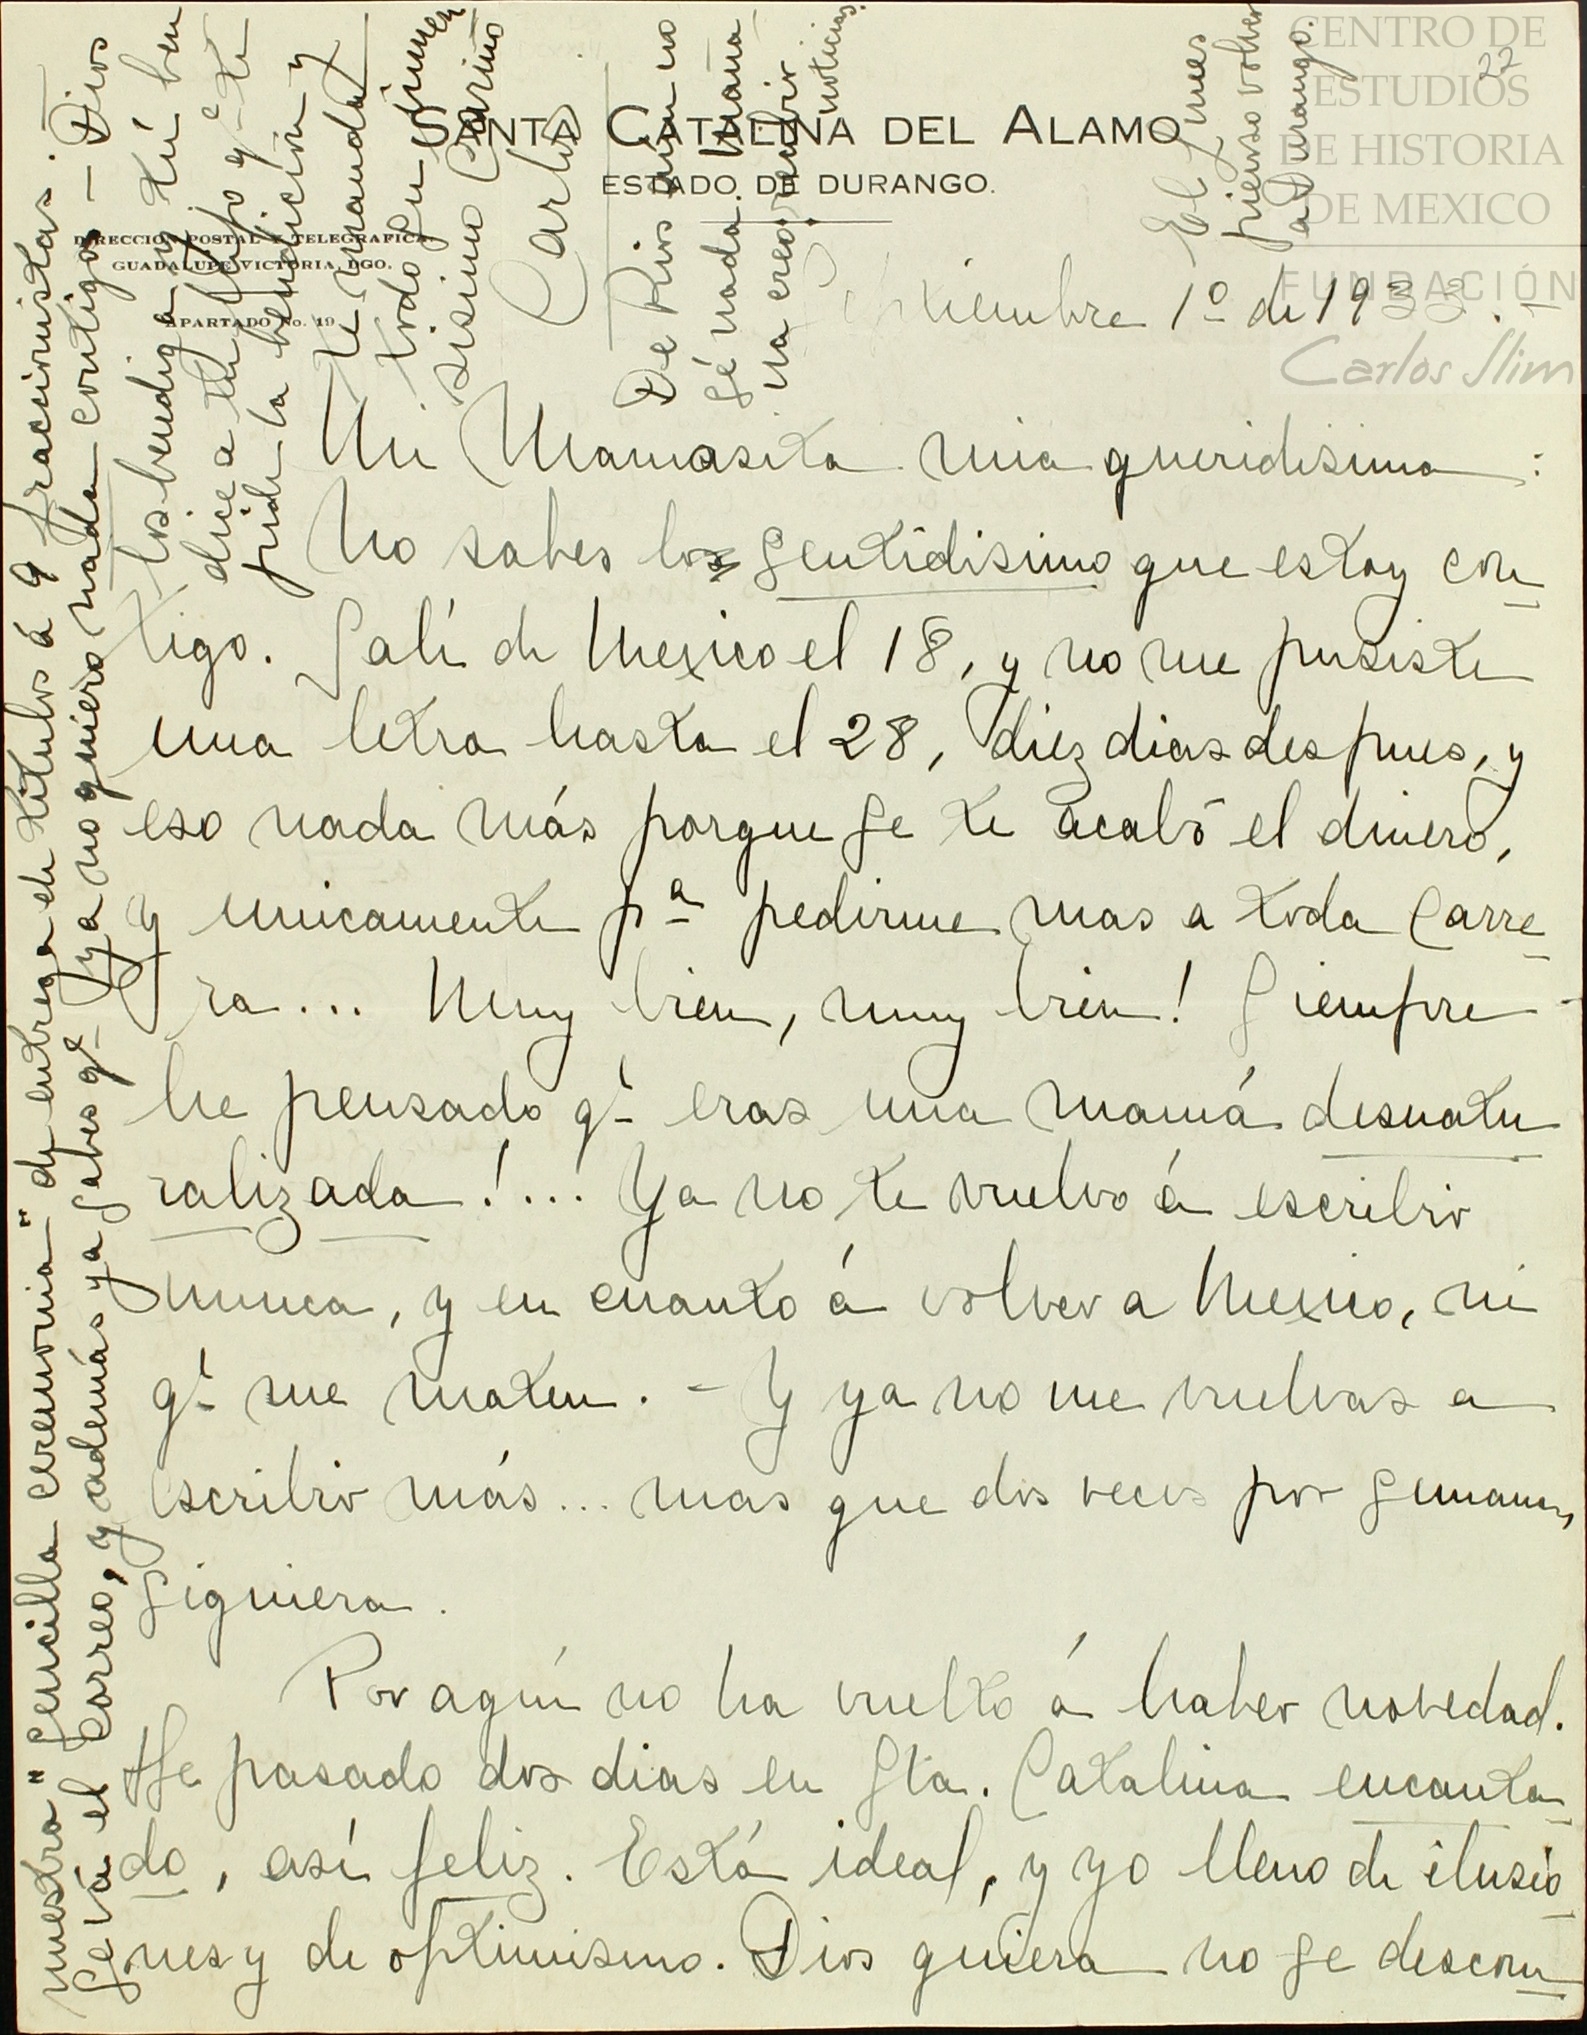 SANTA CATALINA DEL ALAMO
ESTADO DE DURANGO.
DIRECCION POSTAL Y TELEGRAFICA:
GUADALUPE VICTORIA, DGO.
APARTADO No. 19
22
Septiembre 1º de 1933.
Mi Mamasita mia queridisima:
No sabes lo sentidisimo que estoy con
tigo. Salí de Mexico el 18, y no me pusiste
una letra hasta el 28, diez dias despues, y
eso nada más porque se te acabó el dinero,
y unicamente pª pedirme mas a toda carre
ra... Muy bien, muy bien! Siempre
he pensado qᵉ eras una mamá desnatu
ralizada!... Ya no te vuelvo á escribir
nunca, y en cuanto á volver a Mexico, ni
qᵉ me maten. - Y ya no me vuelvas a
escribir más... mas que dos veces por semana,
siquiera.
Por aquí no ha vuelto á haber novedad.
He pasado dos dias en Sta. Catalina encanta
do, así feliz. Está ideal, y yo lleno de ilusio
nes y de optimismo. Dios quiera no se descom
nuestra "sencilla ceremonia" de entrega de titulos á 9 fraccionistas.
Se vá el correo, y además ya sabes qᵉ ya no quiero nada contigo - Dios
los bendiga, y tú ben
dice a tu hijo qᵉ te
pide la bendición y
te manda
todo su inmen
sisimo cariño
Carlos
De Rios aún no
sé nada. Maña
na creo recibir
noticias.
El Lunes
pienso volver
a Durango.
CENTRO DE
ESTUDIOS
DE HISTORIA
DE MEXICO
FUNDACIÓN
Carlos Slim